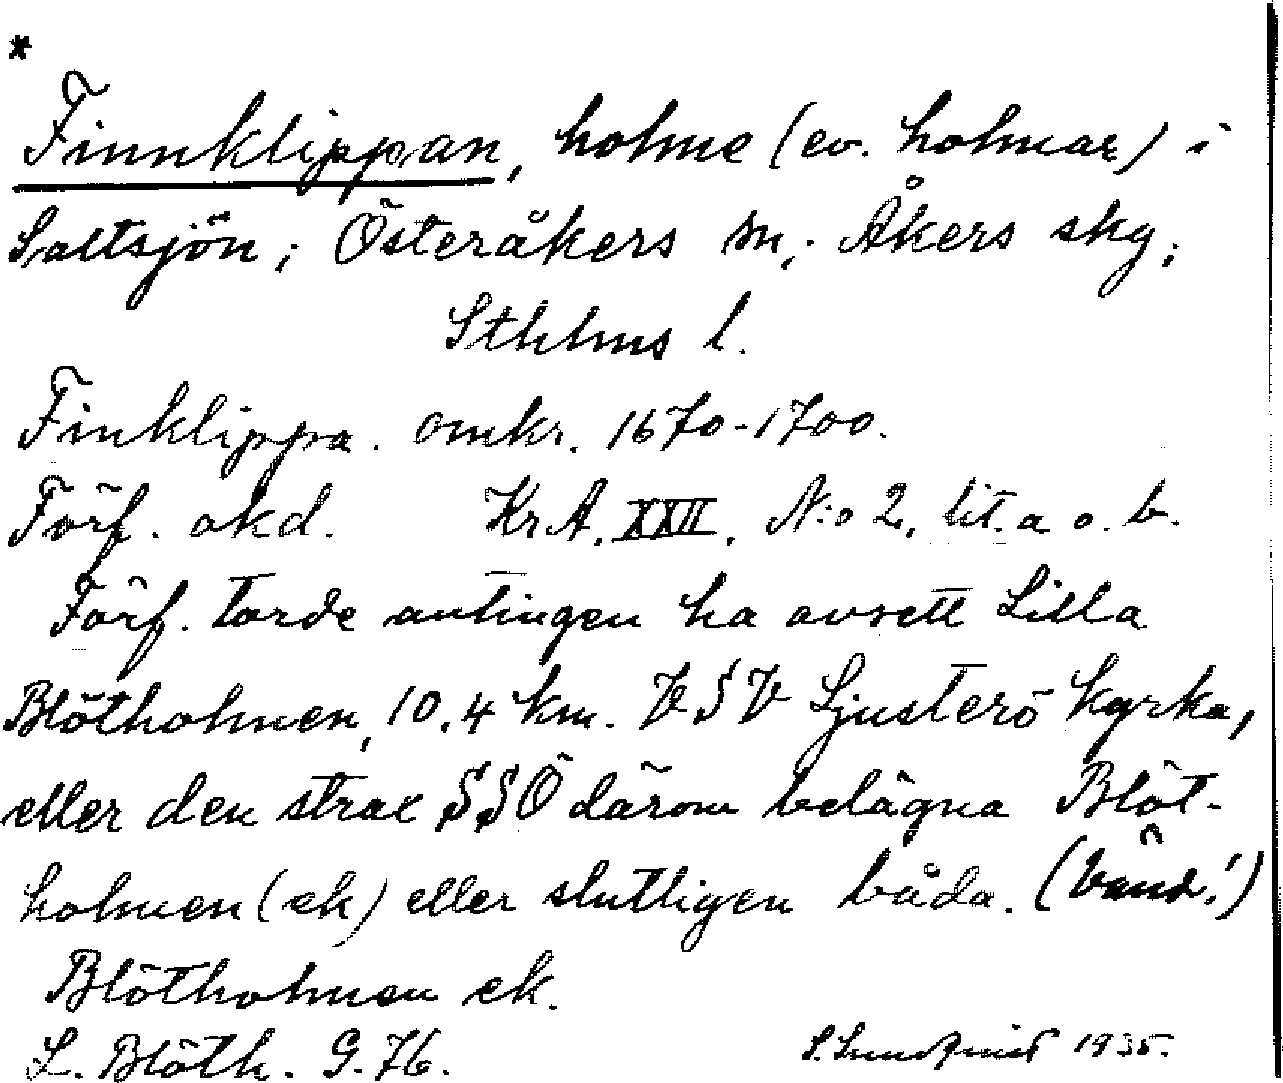 *
Finnklippan, holme (ev. holmar) i
Saltsjön; Österåkers sn; Åkers skg;
Sthlms l.
Finklippa. omkr. 1670-1700.
Förf. okd. KrA. XXII. N:o 2, lit. a o. b.
Förf. torde antingen ha avsett Lilla
Blötholmen, 10.4 km. VSV Ljusterö kyrka,
eller den strax SSÖ därom belägna Blöt-
holmen (ek) eller slutligen båda. (Vänd!)
Blötholmen ek.
L. Blöth. G. 76.
1935.